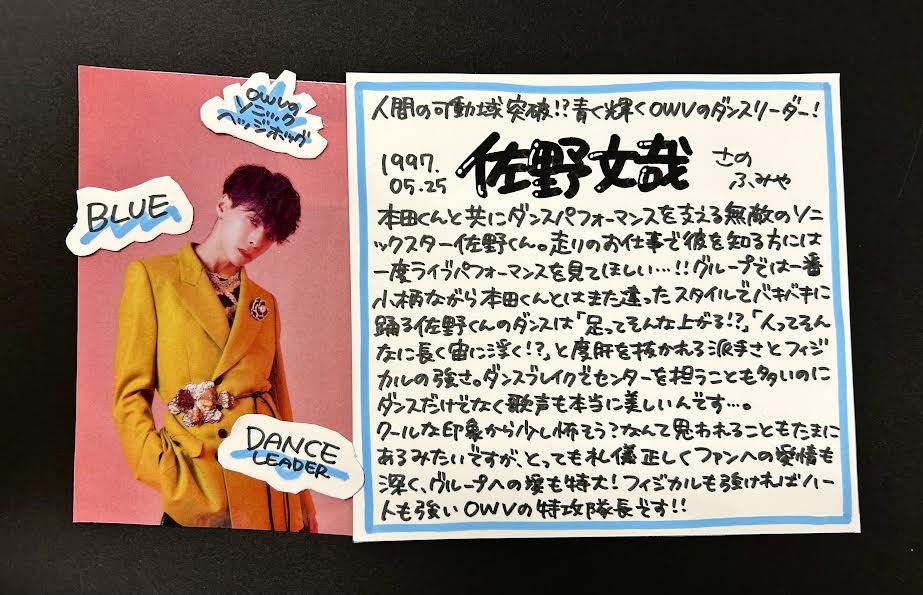 OWVの
ソニック
ヘッジホッグ
BLUE
DANCE
LEADER
人間の可動域突破!?青く輝くOWVのダンスリーダー!
1997.
05.25
佐野文哉
さの
ふみや
本田くんと共にダンスパフォーマンスを支える無敵のソニ
ックスター佐野くん。走りのお仕事で彼を知る方には
一度ライブパフォーマンスを見てほしい…!!グループでは一番
小柄ながら本田くんとはまた違ったスタイルでバキバキに
踊る佐野くんのダンスは「足ってそんな上がる!?」「人ってそん
なに長く宙に浮く!?」と度肝を抜かれる派手さとフィジ
カルの強さ。ダンスブレイクでセンターを担うことも多いのに
ダンスだけでなく歌声も本当に美しいんです…。
クールな印象から少し怖そう?なんて思われることもたまに
あるみたいですが、とっても礼儀正しくファンへの愛情も
深く、グループへの愛も特大!フィジカルも強ければハー
トも強いOWVの特攻隊長です!!